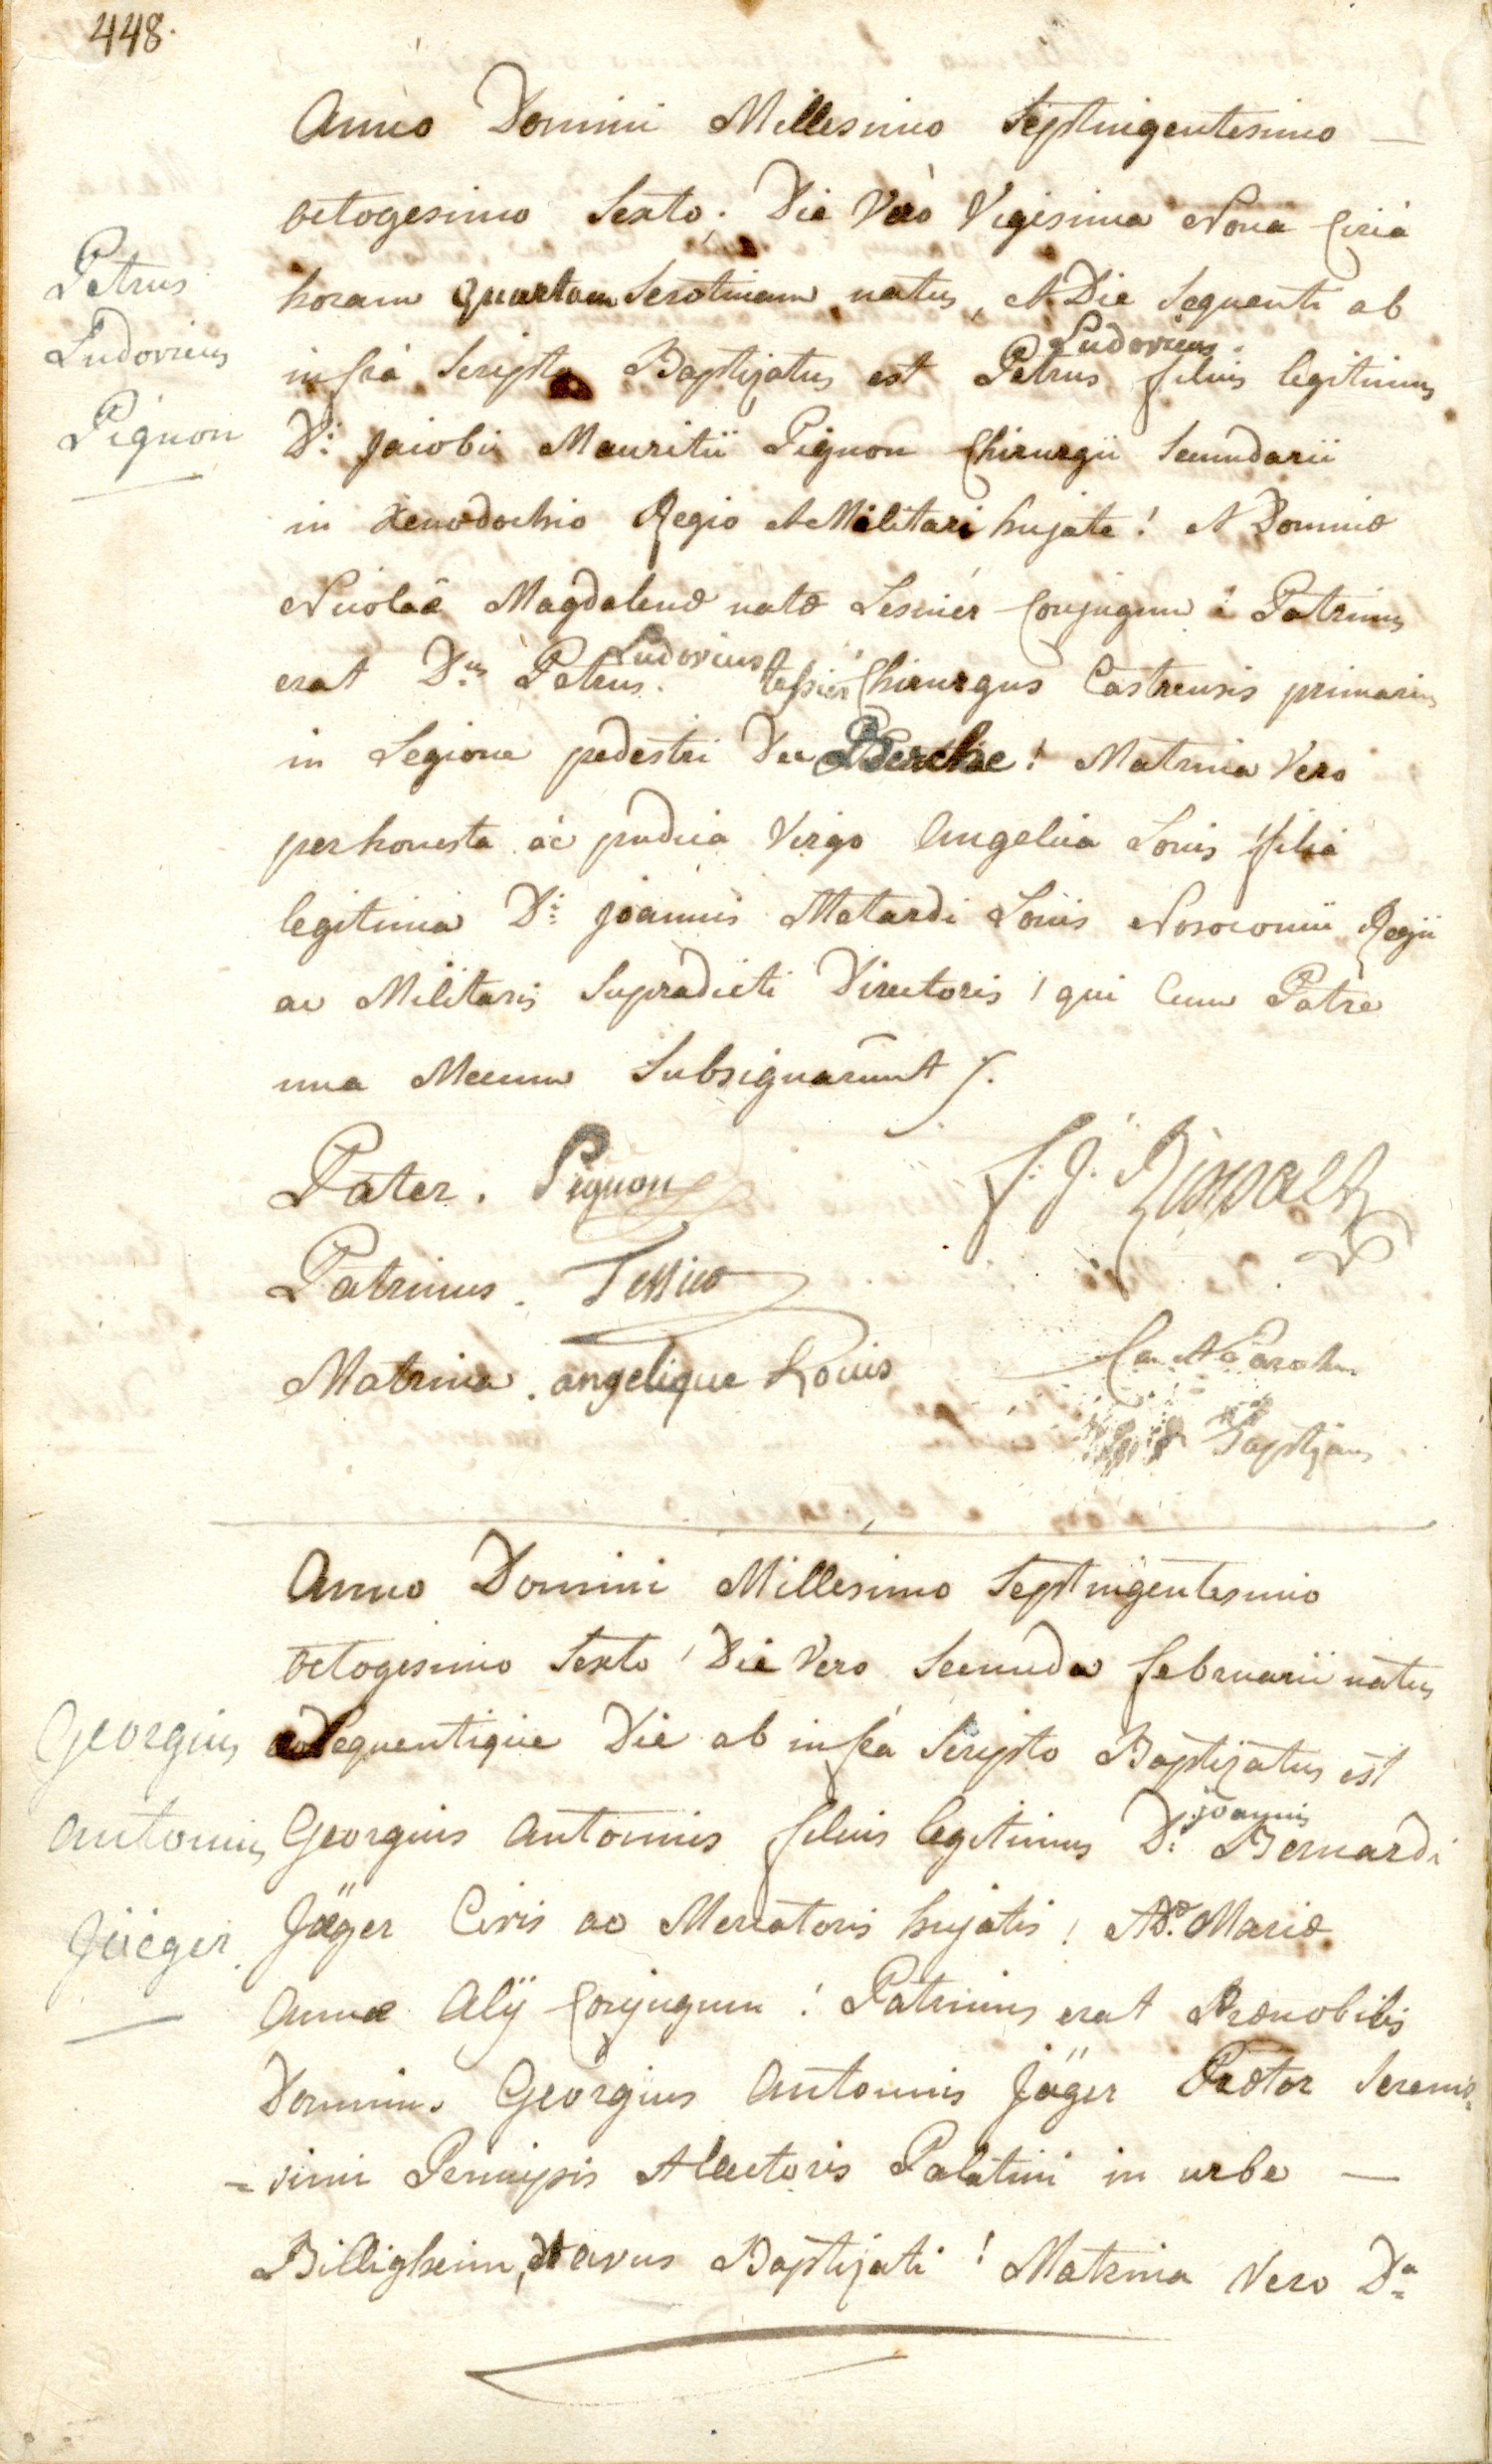 448.
Anno Domini Millesimo Septingentesimo —
octogesimo Sexto. Die Verò Vigesima Nona Circà
Petrus
Ludovicus
Pignon
horam quartam Serotinam natus, et Die Sequenti ab
infrà Scripto Baptizatus est Petrus Ludovicus filius legitimus
Di: Jacobi Mauritii Pignon Chirurgii Secundarii
in Xenodochio Regio et Militari hujate! et Dominæ
Nicolaë Magdalenæ natæ Lesnier Conjugum: Patrinus
erat Dnus Petrus Ludovicus Tessier Chirurgus Castrensis primarius
in Legione pedestri Du Perche! Matrina Vero
perhonesta ac pudica Virgo Angelica Louis filia
legitima Di: Joannis Metardi Louis Nosocomii Regii
ac Militaris Supradicti Directoris! qui Cum Patre
una Mecum Subsignarunt ./.
Pater. Pignon
Patrinus. Tessier
Matrina. angelique Louis
Can. et Parochus
Baptizans
Anno Domini Millesimo Septingentesimo
octogesimo Sexto! Die Vero Secunda februarii natus
Georgius
Antonius
Jäeger.
Sequentique Die ab infrà Scripto Baptizatus est
Georgius Antonius filius legitimus Di: Joannis Bernardi
Jäger Civis ac Mercatoris hujatis! et Dæ. Mariæ
Annæ Alÿ Conjugum! Patrinus erat Prænobilis
Dominus Georgius Antonius Jäger Prætor Serenis=
=simi Principis Electoris Palatini in urbe —
Billigheim, et avus Baptizati! Matrina Vero Da=